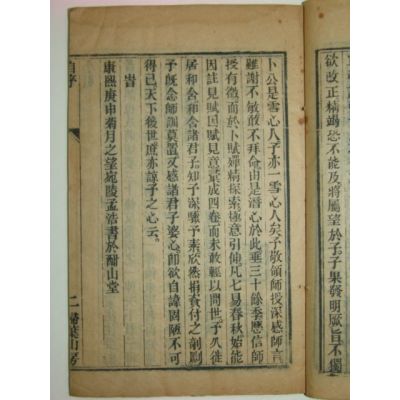 欲改正精竭恐不能及將屬望於子子果發明厥旨不獨
卜公是雪心人予亦一雪心人矣予敬領師授深感師言
雖謝不敏敢不拜命由是潛心於此垂三十餘季應信師
授有徵而於卜賦殫精探索極意引伸凡七易春秋始能
因註見賦因賦見意彙成四卷而未敢輕以問世予久從
居和舍和舍諸君子知予深躐予素欣然捐貲付之剞劂
予既念師訓莫置又感諸君子婆心即欲自諱固陋不可
得已天下後世庶亦諒予之心云
旹
康熙庚申菊月之望宛陵孟浩書於酣山堂
自序
二 掃葉山房